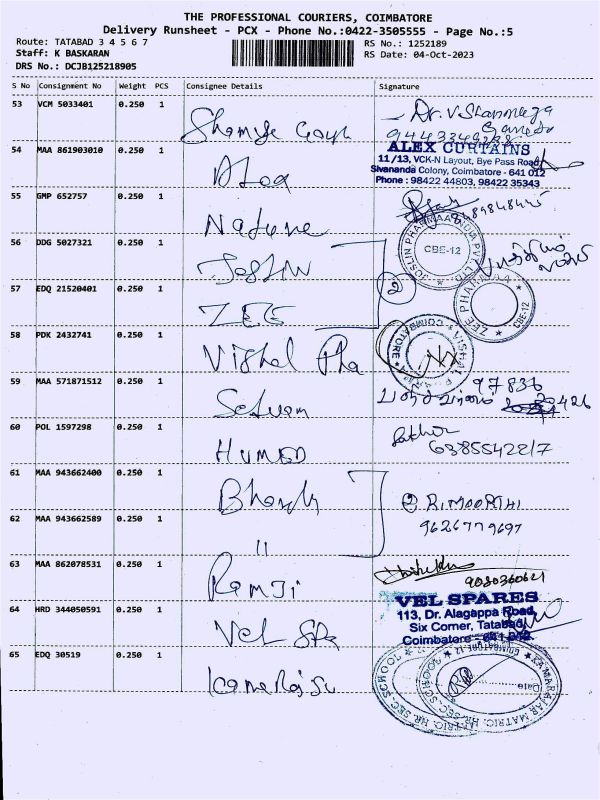 THE PROFESSIONAL COURIERS, COIMBATORE
Delivery Runsheet - PCX - Phone No.:0422-3505555 - Page No.:5
Route: TATABAD 3 4 5 6 7
RS No.: 1252189
Staff: K BASKARAN
RS Date: 04-Oct-2023
DRS No.: DCJB125218905
S No Consignment No Weight PCS Consignee Details Signature
53 VCM 5033401 0.250 1
Dr. V
54 MAA 861903010 0.250 1 Alex
ALEX CURTAINS
11/13, VCK-N Layout, Bye Pass Road
Sivananda Colony, Coimbatore - 641 012
Phone : 98422 44803, 98422 35343
55 GMP 652757 0.250 1 Nature
56 DDG 5027321 0.250 1 Joslin
JOSLIN PHARMA INDIA PVT LTD
CBE-12
57 EDQ 21520401 0.250 1 ZEE
2
ZEE PHARMA
CBE-12
58 PDK 2432741 0.250 1 Vishal Pha
VISHAL PHARMA
COIMBATORE
59 MAA 571871512 0.250 1
97836
20426
60 POL 1597298 0.250 1 HUMED
6385542217
61 MAA 943662400 0.250 1
2 R.MOORTHI
9626779697
62 MAA 943662589 0.250 1 "
63 MAA 862078531 0.250 1 RAMJI
9080360621
64 HRD 344050591 0.250 1 Vel Spa
VEL SPARES
113, Dr. Alagappa Road,
Six Corner, Tatabad,
Coimbatore - 641 012.
65 EDQ 30519 0.250 1 Kamaraj Sc
KAMARAJAR MATRIC. HR. SEC. SCHOOL
COIMBATORE-12
Date